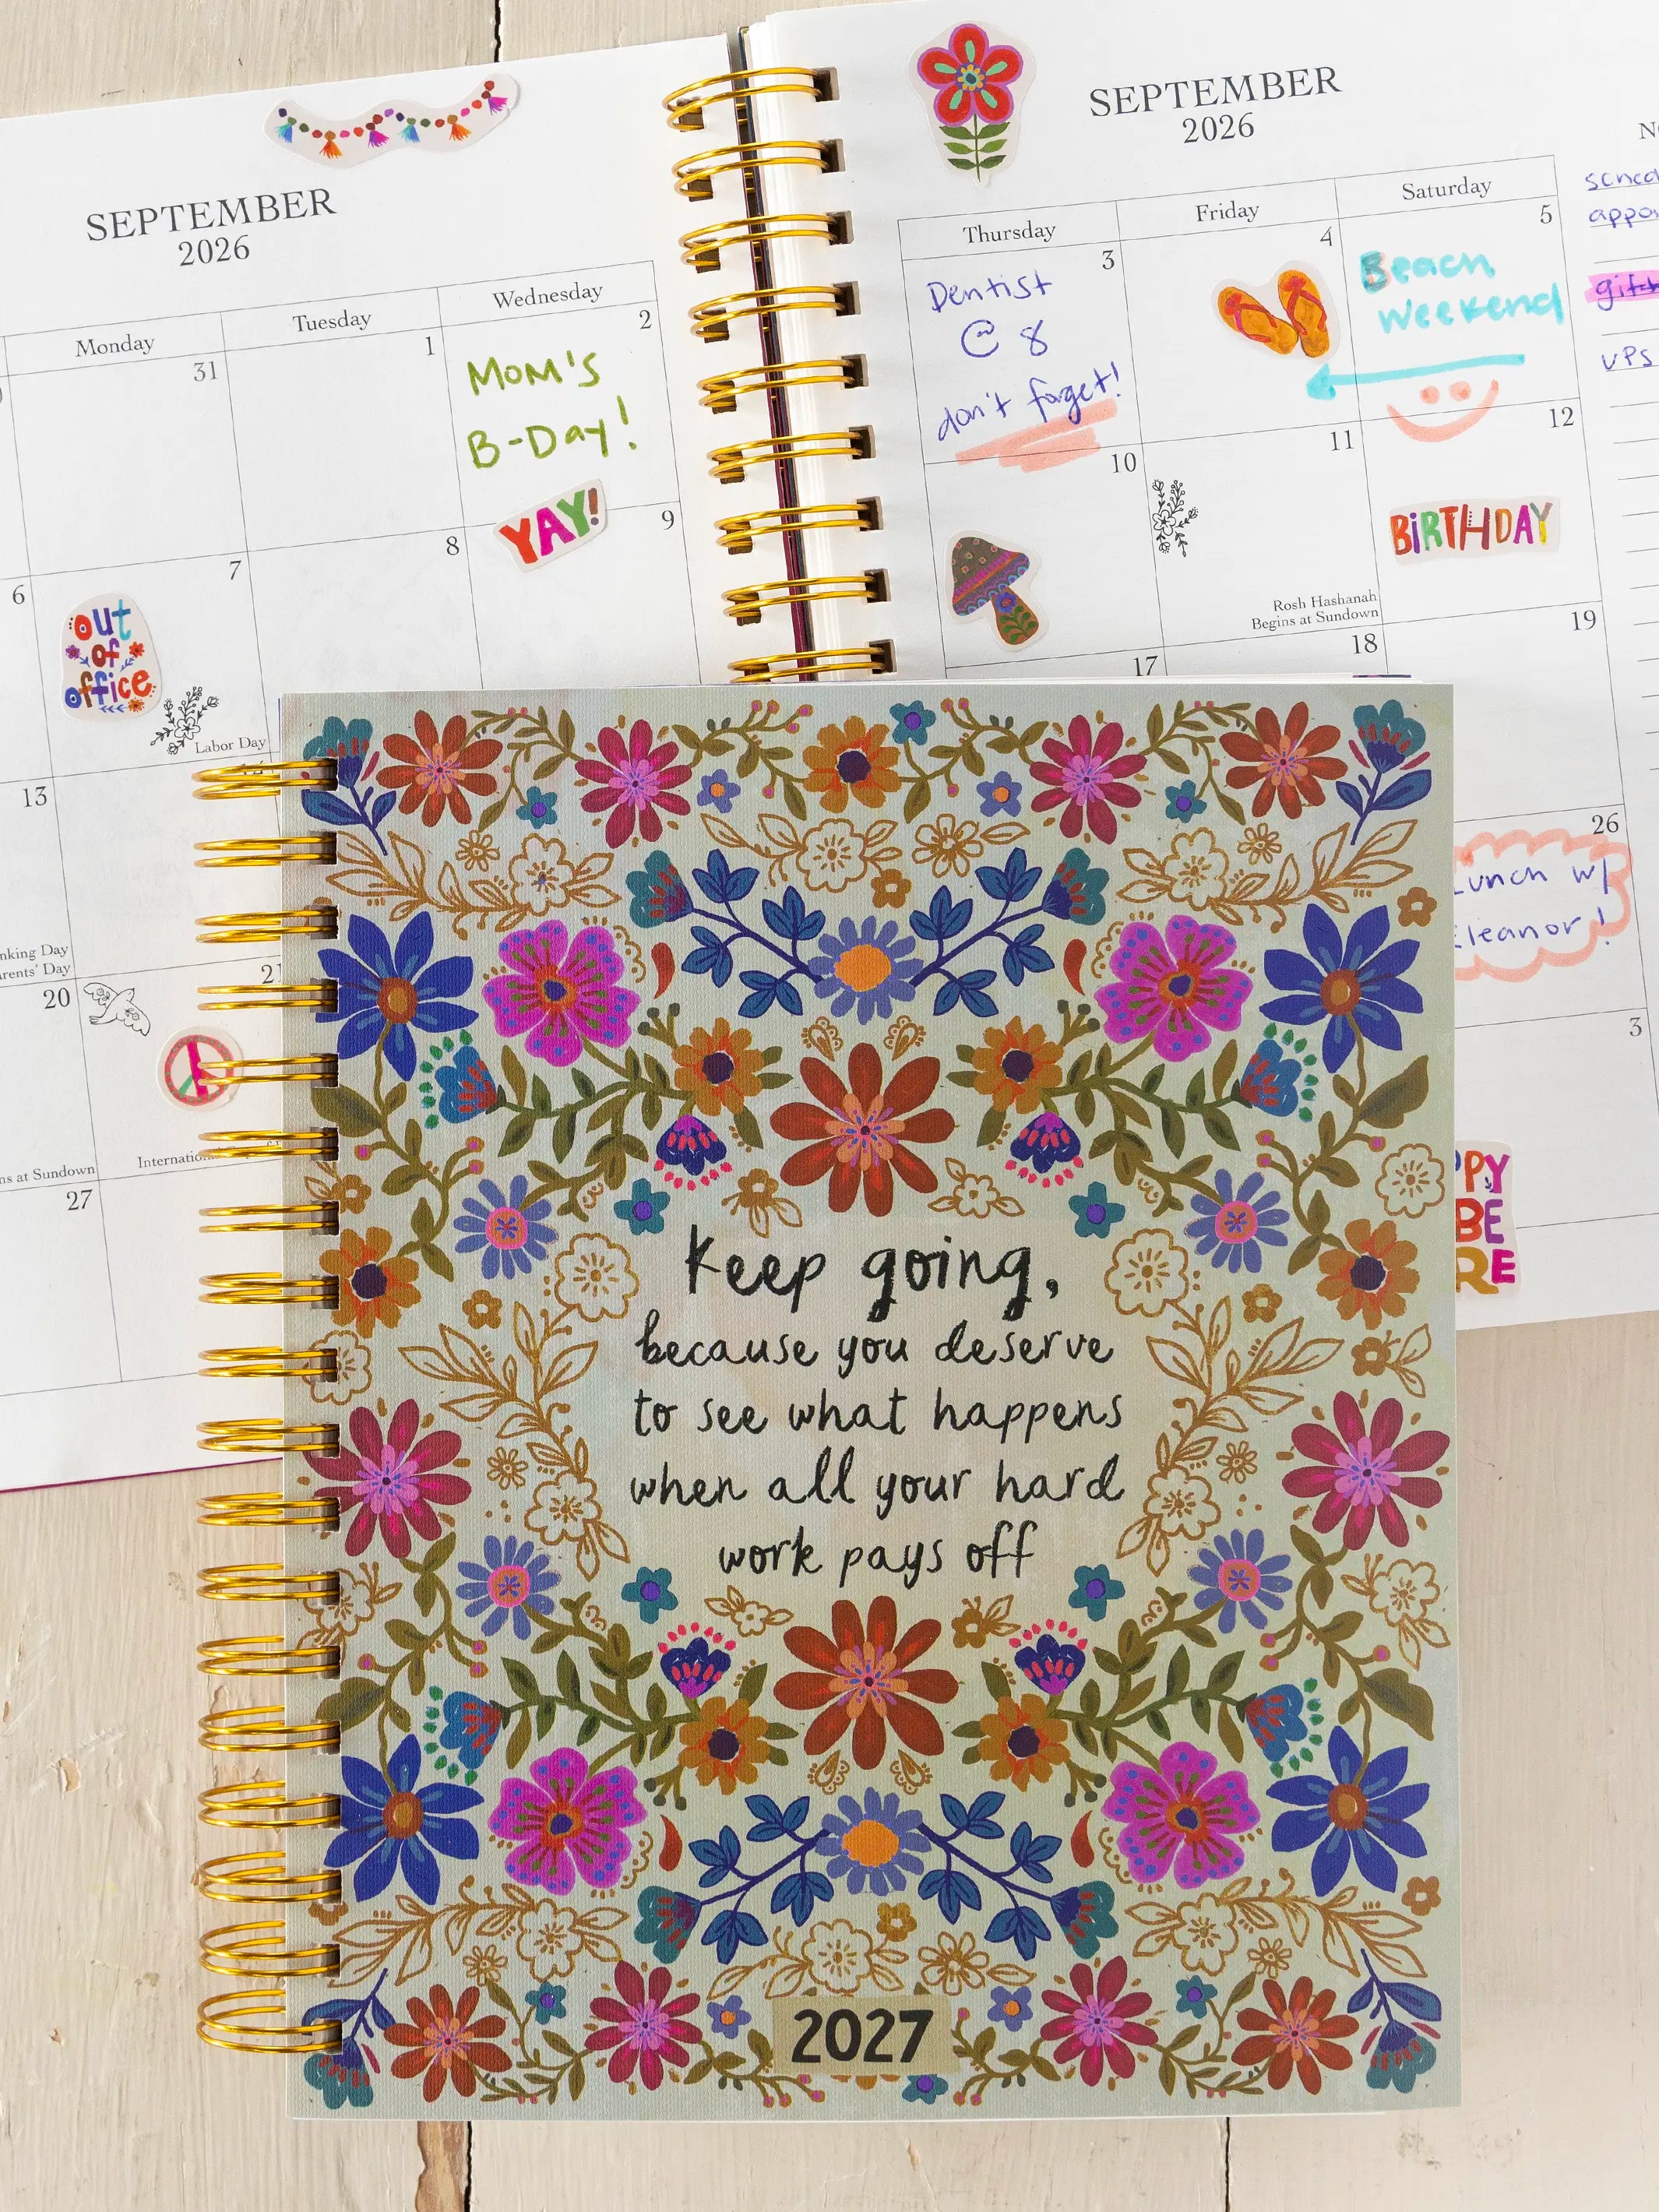 SEPTEMBER
2026
Monday
Tuesday
Wednesday
31
1
2
MOM'S
B-DAY!
YAY!
6
7
8
9
out
of
office
Labor Day
13
20
21
ns at Sundown
27
SEPTEMBER
2026
Thursday
Friday
Saturday
3
4
5
Dentist
@ 8
don't forget!
Beach
Weekend
10
11
12
BIRTHDAY
Rosh Hashanah
Begins at Sundown
17
18
19
26
Lunch w/
Eleanor!
3
VPS
Keep going,
because you deserve
to see what happens
when all your hard
work pays off
2027